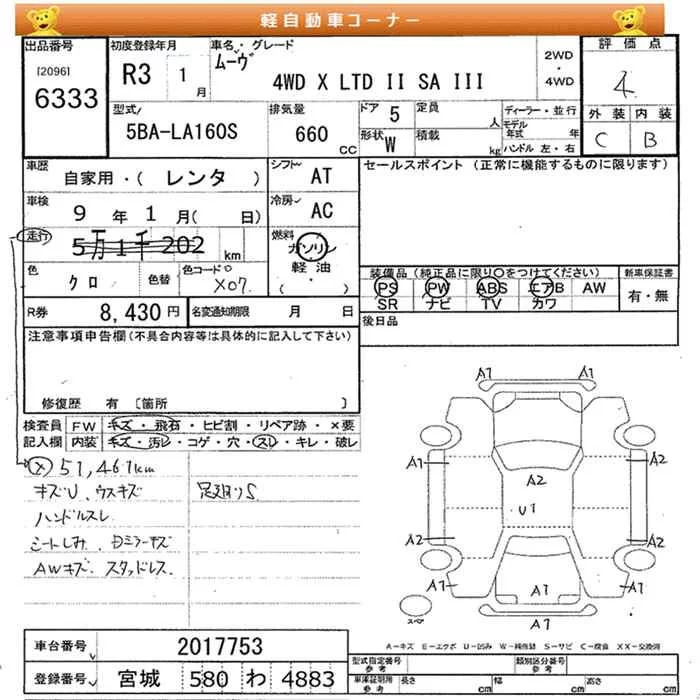 軽自動車コーナー
出品番号
[2096]
6333
初度登録年月
R3 1月
車名・グレード
ムーヴ
4WD X LTD II SA III
2WD
・
4WD
評価点
4
外装 内装
C B
型式
5BA-LA160S
排気量
660 CC
ドア 5
形状 W
定員 人
積載 kg
ディーラー・並行
モデル年式 年
ハンドル 左・右
車歴
自家用・( レンタ )
シフト AT
セールスポイント (正常に機能するものに限ります)
車検
9年1月( 日)
冷房 AC
走行
5万1千202 km
燃料
ガソリン
軽油
( )
色
クロ
色替
色コードNo
X07
装備品 (純正品に限り○をつけてください)
PS PW ABS エアB AW
SR ナビ TV カワ
新車保証書
有・無
R券 8,430円
名変通知期限 月 日
後日品
注意事項申告欄(不具合内容等は具体的に記入して下さい)
修復歴 有 [箇所 ]
検査員記入欄
FW キズ・飛石・ヒビ割・リペア跡・×要
内装 キズ・汚レ・コゲ・穴・スレ・キレ・破レ
(×) 51,461km
キズU、ウスキズ
足廻りS
ハンドルスレ
シートしみ、
AWキズ、スタッドレス
A1 A1
A1 A2
A2
U1
A2 A2
A1 A1 A1
A1
スペア
A-キズ E-エクボ U-凹み W-補修跡 S-サビ C-腐食 XX-交換済
車台番号 2017753
登録番号 宮城 580 わ 4883
型式指定番号 参考
類別区分番号 参考
車庫証明用 参考
長さ cm 幅 cm 高さ cm